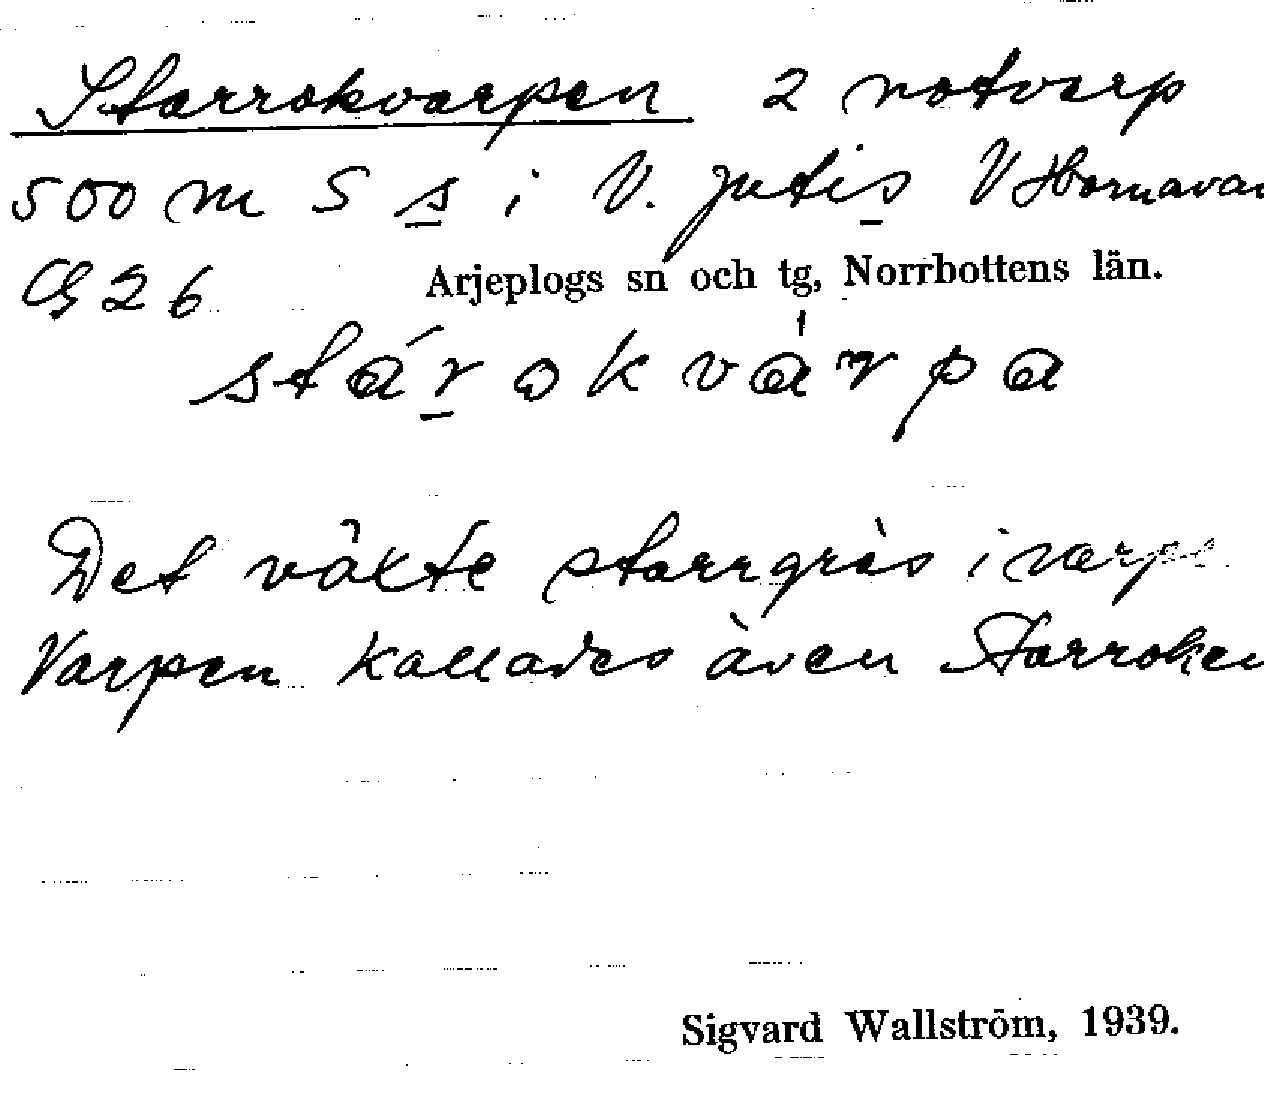 Starrokvarpen 2 notvarp
500 m S s i V. jutis V Hornavan
G 26 Arjeplogs sn och tg, Norrbottens län.
stárokvárpa
Det växte starrgräs i varpe
Varpen kallades även Starroken
Sigvard Wallström, 1939.